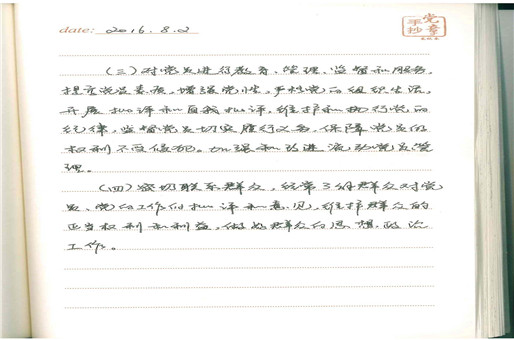 date: 2016.8.2
党章
手抄
(三)对党员进行教育、管理、监督和服务,
提高党员素质,增强党性,严格党的组织生活,
开展批评和自我批评,维护和执行党的
纪律,监督党员切实履行义务,保障党员的
权利不受侵犯。加强和改进流动党员管
理。
(四)密切联系群众,经常了解群众对党
员、党的工作的批评和意见,维护群众的
正当权利和利益,做好群众的思想政治
工作。